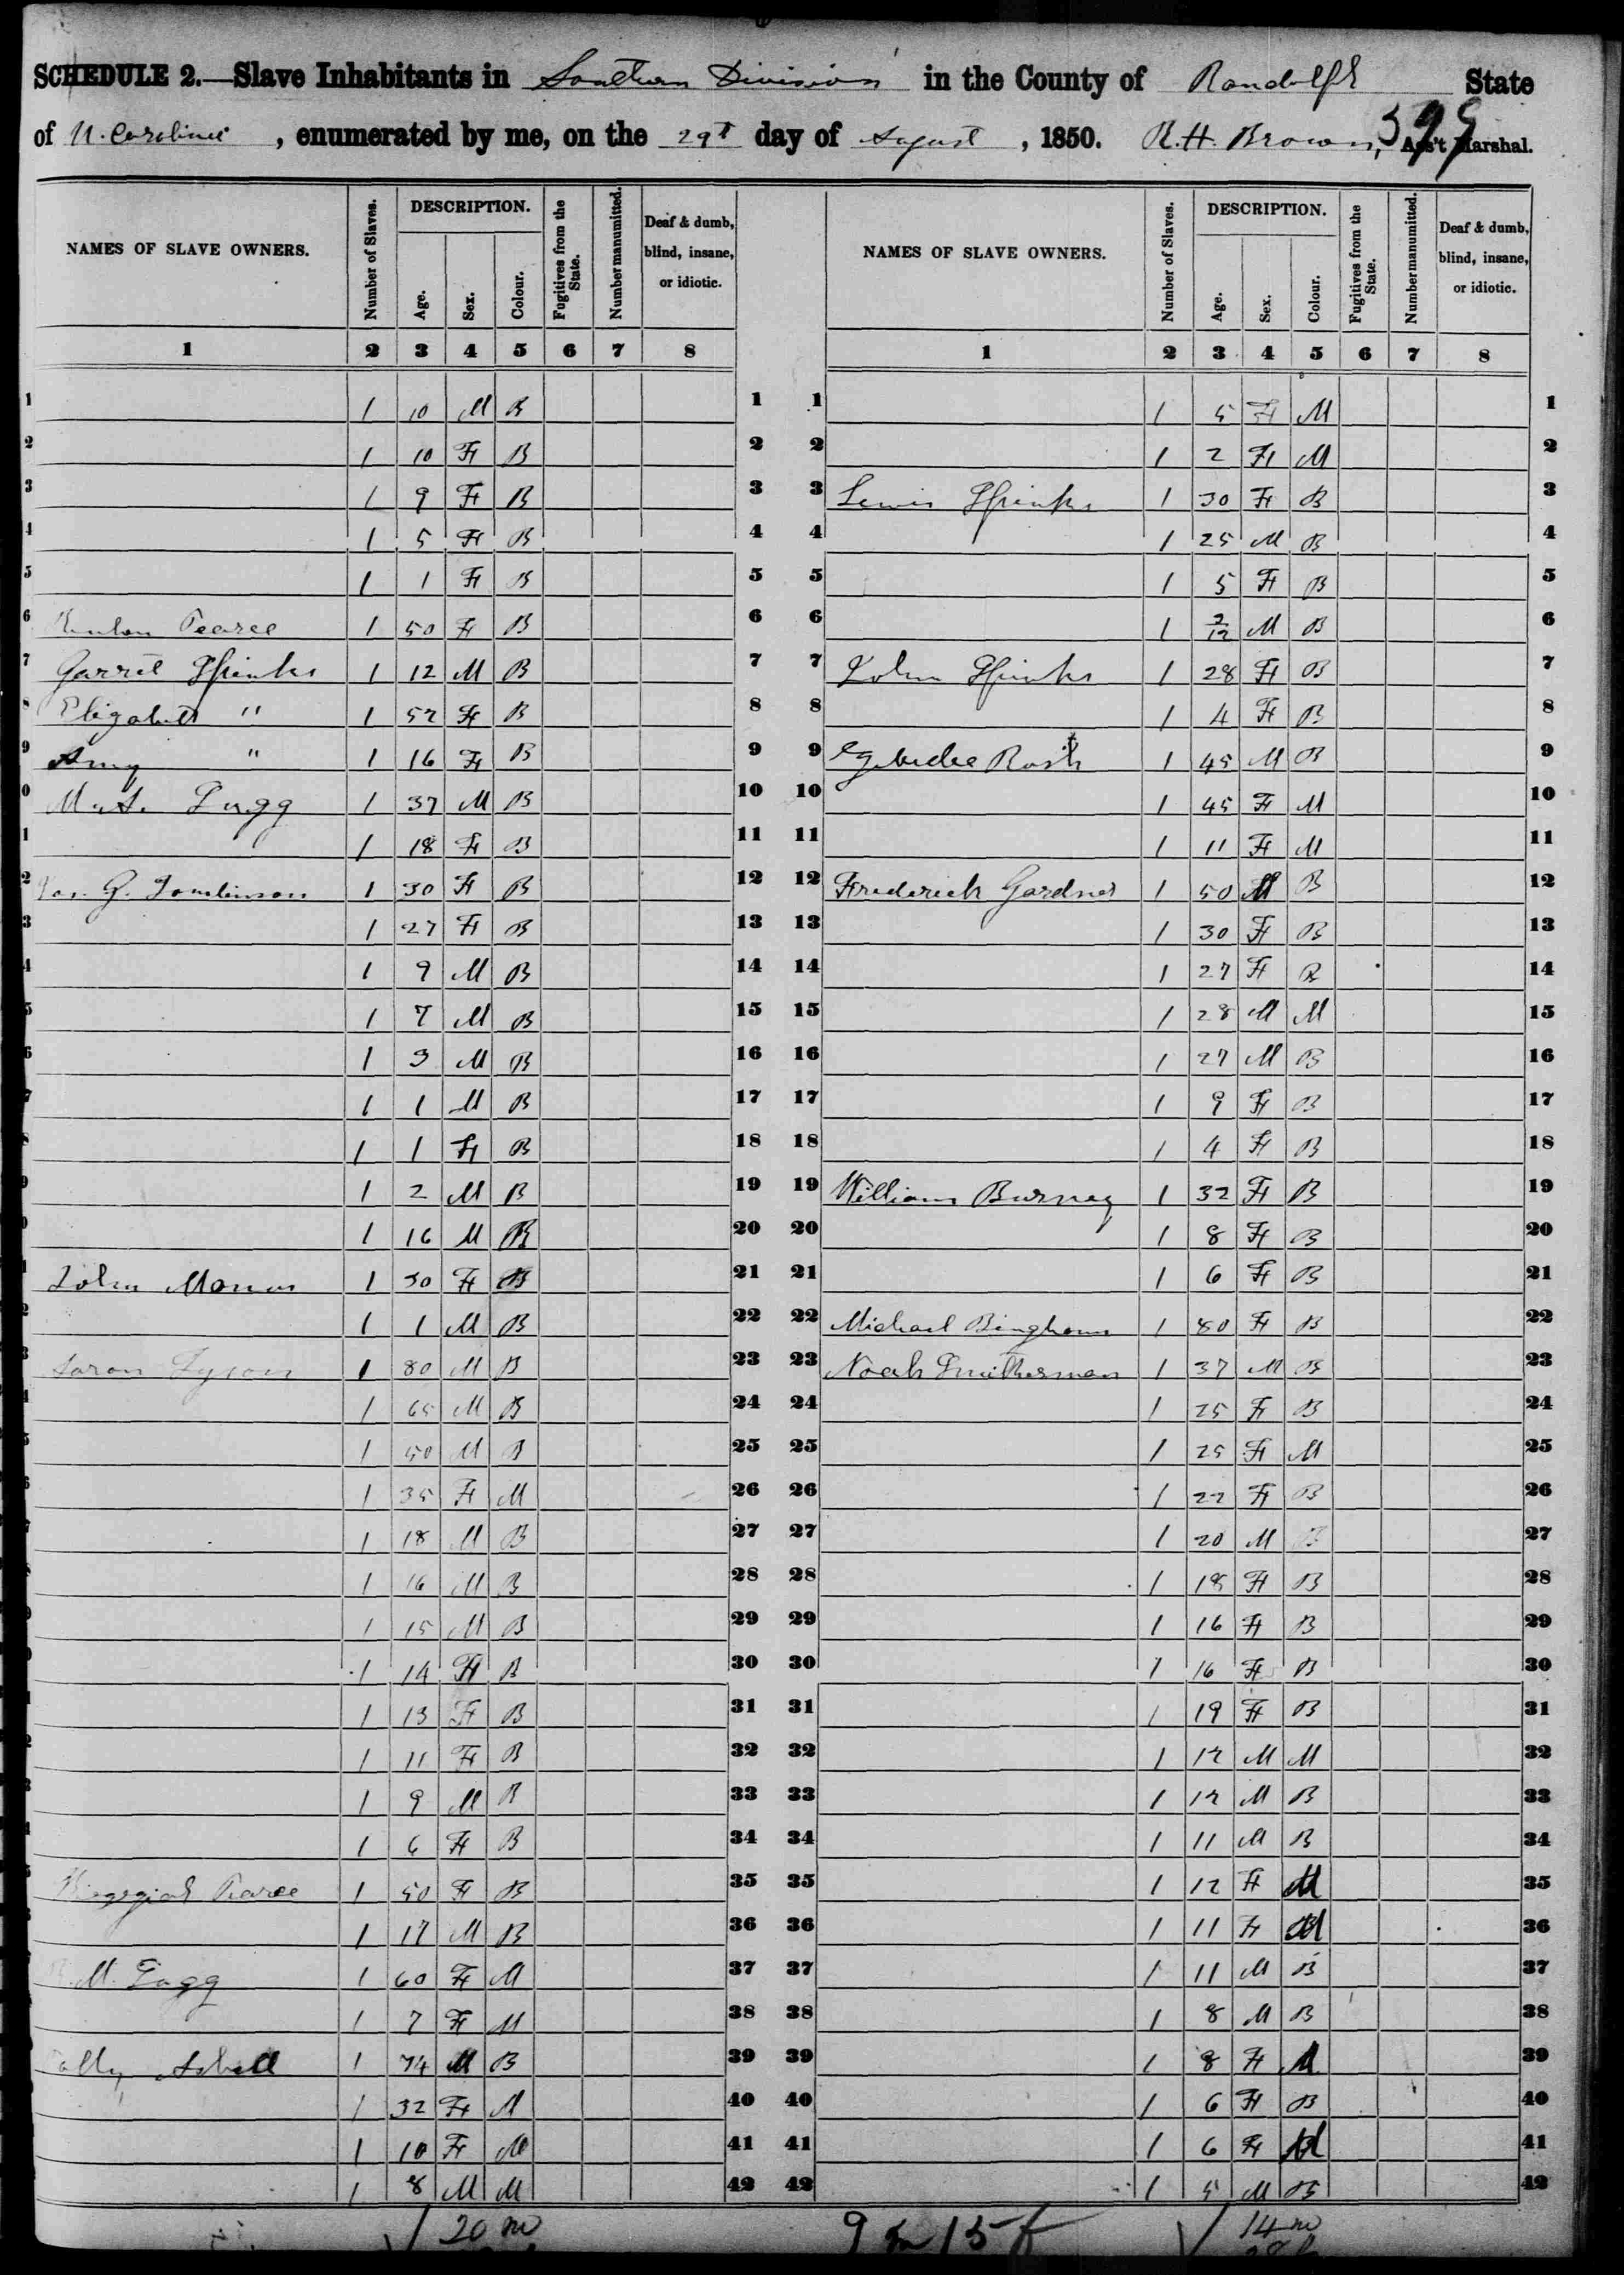 SCHEDULE 2.—Slave Inhabitants in Southern Division in the County of Randolph State
of N. Carolina, enumerated by me, on the 29th day of August, 1850. R. H. Brown, Ass't Marshal.
399
NAMES OF SLAVE OWNERS. Number of Slaves. DESCRIPTION. Age. Sex. Colour. Fugitives from the State. Number manumitted. Deaf & dumb, blind, insane, or idiotic. NAMES OF SLAVE OWNERS. Number of Slaves. DESCRIPTION. Age. Sex. Colour. Fugitives from the State. Number manumitted. Deaf & dumb, blind, insane, or idiotic.
1 2 3 4 5 6 7 8 1 2 3 4 5 6 7 8
1 1 10 M B 1 1 1 5 F M 1
2 1 10 F B 2 2 1 2 F M 2
3 1 9 F B 3 3 Lewis Spinks 1 30 F B 3
4 1 5 F B 4 4 1 25 M B 4
5 1 1 F B 5 5 1 5 F B 5
6 Pearce 1 50 F B 6 6 1 2/12 M B 6
7 Garret Spinks 1 12 M B 7 7 John Spinks 1 28 F B 7
8 Elizabeth " 1 52 F B 8 8 1 4 F B 8
9 Amy " 1 16 F B 9 9 Rush 1 45 M B 9
0 Fugg 1 37 M B 10 10 1 45 F M 10
1 1 18 F B 11 11 1 11 F M 11
2 Jas. G. Tomlinson 1 30 F B 12 12 Frederick Gardner 1 50 M B 12
3 1 27 F B 13 13 1 30 F B 13
4 1 9 M B 14 14 1 27 F B 14
5 1 7 M B 15 15 1 28 M M 15
6 1 3 M B 16 16 1 27 M B 16
7 1 1 M B 17 17 1 9 F B 17
8 1 1 F B 18 18 1 4 F B 18
9 1 2 M B 19 19 William Burney 1 32 F B 19
0 1 16 M B 20 20 1 8 F B 20
1 John 1 30 F B 21 21 1 6 F B 21
2 1 1 M B 22 22 Michael Bingham 1 80 F B 22
3 Aaron Tyson 1 80 M B 23 23 Noah Smitherman 1 37 M B 23
4 1 65 M B 24 24 1 25 F B 24
5 1 50 M B 25 25 1 25 F M 25
6 1 35 F M 26 26 1 22 F B 26
7 1 18 M B 27 27 1 20 M B 27
1 16 M B 28 28 1 18 F B 28
1 15 M B 29 29 1 16 F B 29
1 14 F B 30 30 1 16 F B 30
1 13 F B 31 31 1 19 F B 31
1 11 F B 32 32 1 12 M M 32
1 9 M B 33 33 1 12 M B 33
1 6 F B 34 34 1 11 M B 34
Pearce 1 50 F B 35 35 1 12 F M 35
1 17 M B 36 36 1 11 F M 36
M. Fugg 1 60 F M 37 37 1 11 M B 37
1 7 F M 38 38 1 8 M B 38
1 74 M B 39 39 1 8 F M 39
1 32 F M 40 40 1 6 F B 40
1 10 F M 41 41 1 6 F M 41
1 8 M M 42 42 1 5 M B 42
20 m 9 m 15 f 14 m